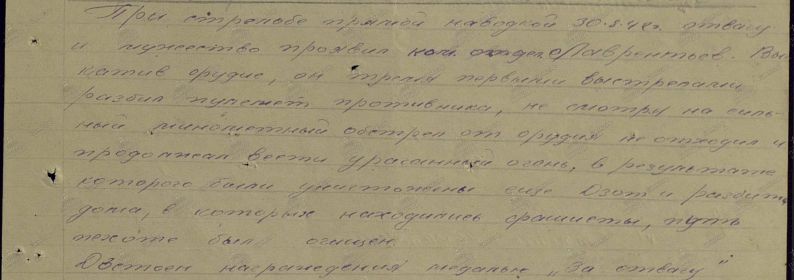 При стрельбе прямой наводкой 30.8.42г. отвагу
и мужество проявил ком. отдел. Лаврентьев. Вы-
катив орудие, он тремя первыми выстрелами
разбил пулемет противника, не смотря на силь-
ный минометный обстрел от орудия не отходил и
продолжал вести ураганный огонь, в результате
которого были уничтожены еще Дзот и разбиты
дома, в которых находились фашисты, путь
пехоте был очищен.
Достоин награждения медалью "За отвагу"